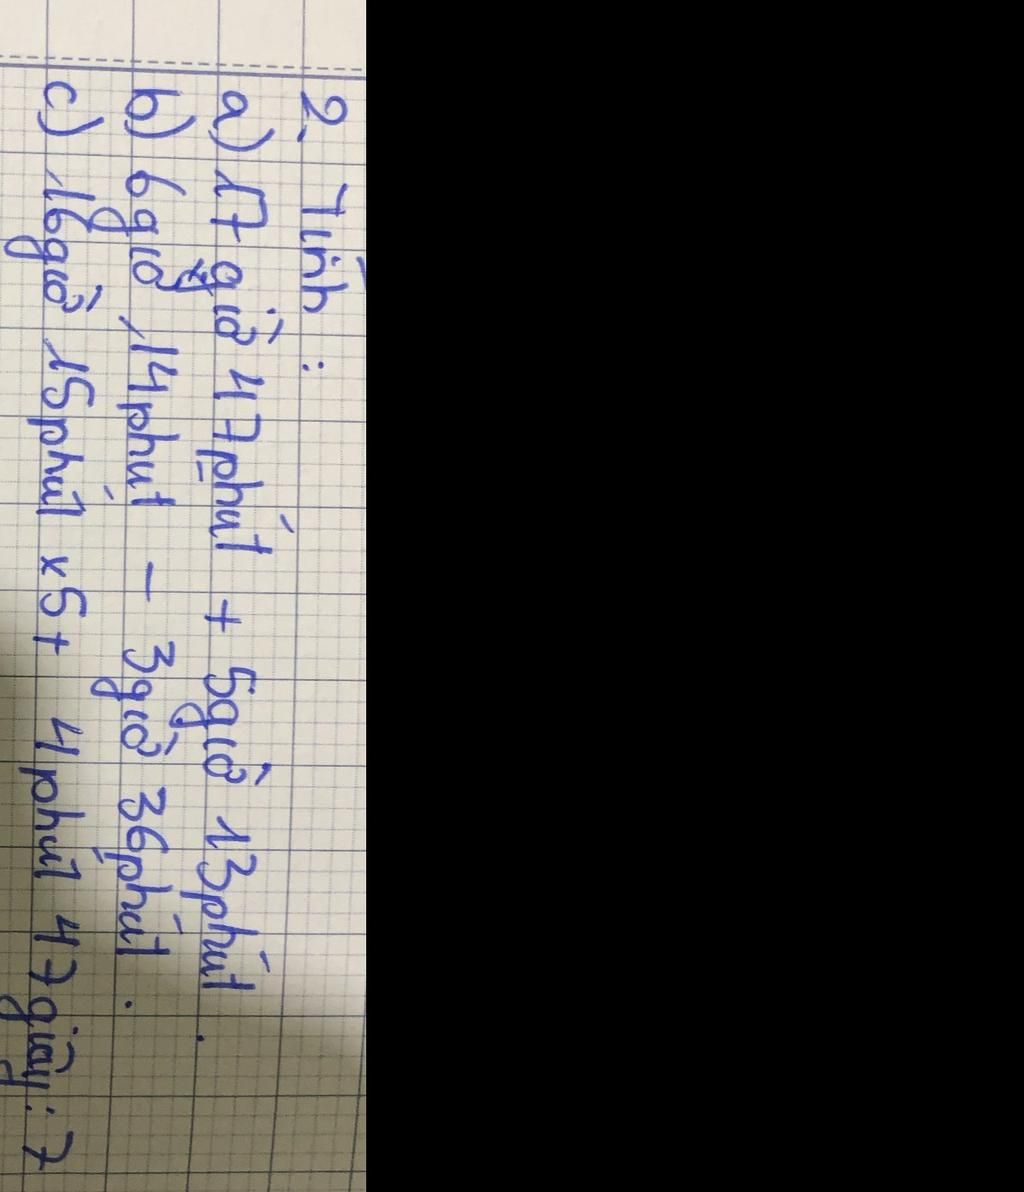 2. Tính :
a) 17 giờ 47 phút + 5 giờ 13 phút .
b) 6 giờ 14 phút - 3 giờ 36 phút .
c) 16 giờ 15 phút x 5 + 4 phút 47 giây : 7